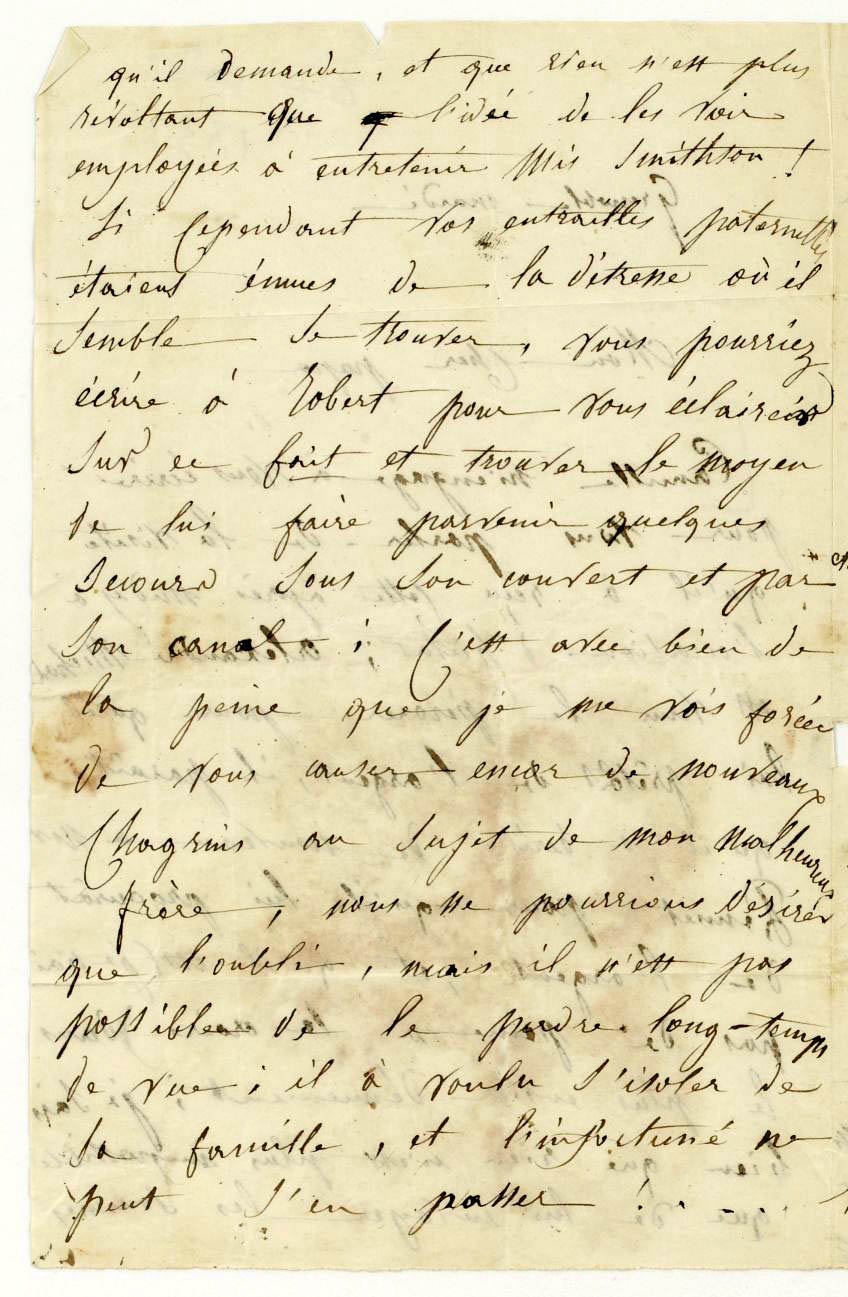 qu'il demande, et que rien n'est plus
révoltant que l'idée de les voir
employées à entretenir Mis Smithson !
Si cependant vos entrailles paternelles
étaient émues de la détresse où il
semble se trouver, vous pourriez
écrire à Robert pour vous éclaircir
sur ce fait et trouver le moyen
de lui faire parvenir quelques
secours sous son couvert et par
son canal ; C'est avec bien de
la peine que je me vois forcée
de vous causer encor de nouveaux
Chagrins au sujet de mon malheureux
frère, nous ne pourrions désirer
que l'oubli, mais il n'est pas
possible de le perdre long-temps
de vue ; il à voulu s'isoler de
sa famille, et l'infortuné ne
peut s'en passer !.....